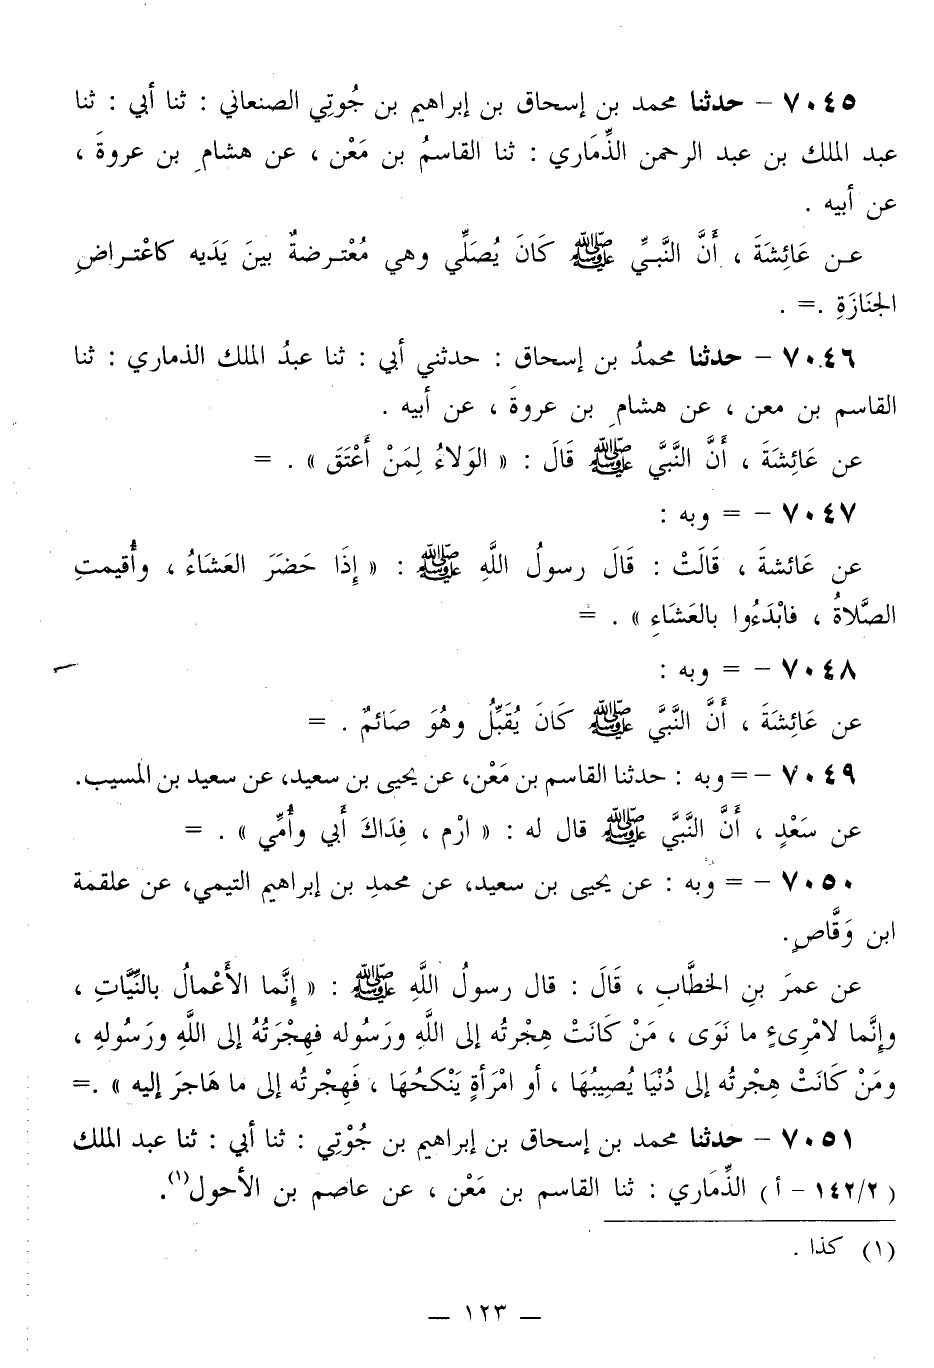 ٧٠٤٥ - حدثنا محمد بن إسحاق بن إبراهيم بن جُوتِي الصنعاني : ثنا أبي : ثنا
عبد الملك بن عبد الرحمن الذِّمَاري : ثنا القاسمُ بن مَعْن ، عن هشامِ بن عروةَ ،
عن أبيه .
عـن عَائِشَةَ ، أَنَّ النَّبـيِّ ﷺ كَانَ يُصَلِّي وهي مُعْتـرضةٌ بينَ يَدَيه كاعْتـراضِ
الجنَازَةِ .= .
٧٠٤٦ - حدثنا محمدُ بن إسحاق : حدثني أبي : ثنا عبدُ الملك الذماري : ثنا
القاسم بن معن ، عن هشامِ بن عروةَ ، عن أبيه .
عن عَائِشَةَ ، أَنَّ النَّبَّي ﷺ قَالَ : « الوَلاءُ لِمَنْ أَعْتَقَ » . =
٧٠٤٧ - = وبه :
عن عَائشةَ ، قَالَتْ : قَالَ رسولُ اللَّهِ ﷺ : « إِذَا حَضَرَ العَشَاءُ ، وأُقيمتِ
الصَّلاةُ ، فابْدَءُوا بالعَشَاءِ » . =
٧٠٤٨ - = وبه :
عن عَائِشَةَ ، أَنَّ النَّبَّي ﷺ كَانَ يُقَبِّلُ وهُوَ صَائمٌ . =
٧٠٤٩ - = وبه : حدثنا القاسم بن مَعْن، عن يحيى بن سعيد، عن سعيد بن المسيب.
عن سَعْدٍ ، أَنَّ النَّبَّي ﷺ قال له : « ارْم ، فِدَاكَ أَبي وأُمِّي » . =
٧٠٥٠ - = وبه : عن يحيى بن سعيد، عن محمدِ بن إبراهيم التيمي، عن علقمة
ابن وَقَّاصٍ.
عن عمرَ بنِ الخطَّابِ ، قَالَ : قال رسولُ اللَّهِ ﷺ : « إنَّما الأَعْمالُ بالنِّيَّاتِ ،
وإِنَّما لامْرِىءٍ ما نَوَى ، مَنْ كَانَتْ هِجْرتُه إلى اللَّهِ ورَسُوله فهِجْرَتُهُ إلى اللَّهِ ورَسُولهِ ،
ومَنْ كَانَتْ هِجْرتُه إلى دُنْيَا يُصِيبُهَا ، أو امْرَأةٍ يَنْكحُهَا ، فَهِجْرتُه إلى ما هَاجرَ إليه » .=
٧٠٥١ - حدثنا محمد بن إسحاق بن إبراهيم بن جُوْتِي : ثنا أبي : ثنا عبد الملك
( ١٤٢/٢ - أ ) الذِّمَاري : ثنا القاسم بن مَعْن ، عن عاصم بن الأحول(١).
(١) كذا .
— ١٢٣ —